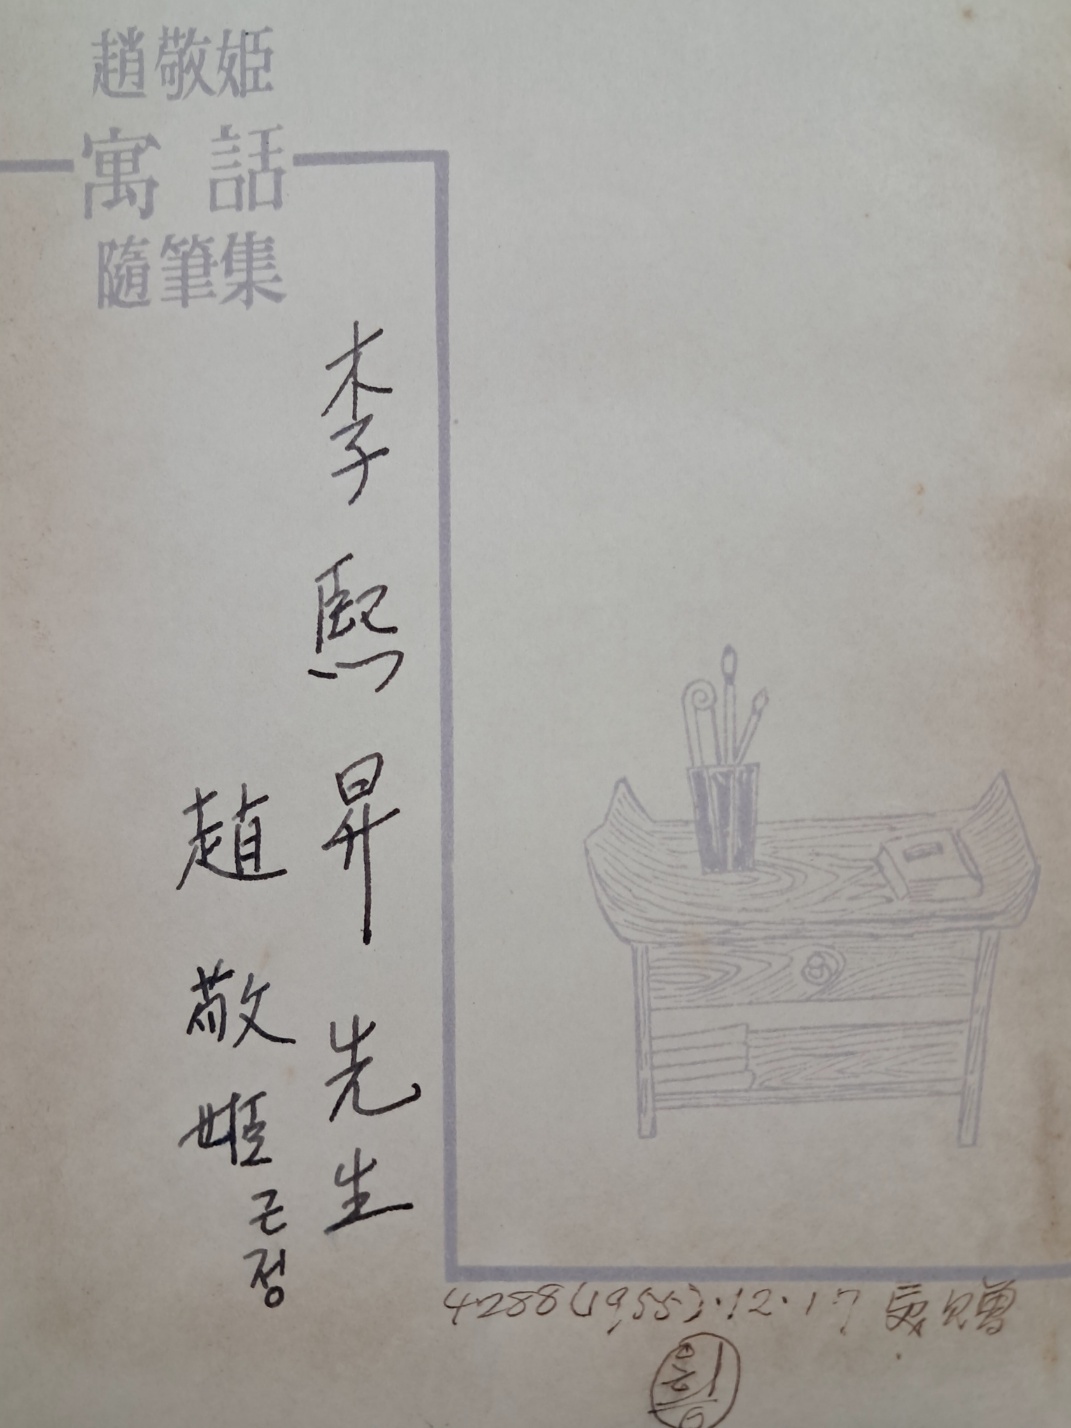 趙敬姬
寓話
隨筆集
李熙昇先生
趙敬姬 근정
4288(1955).12.17 受贈